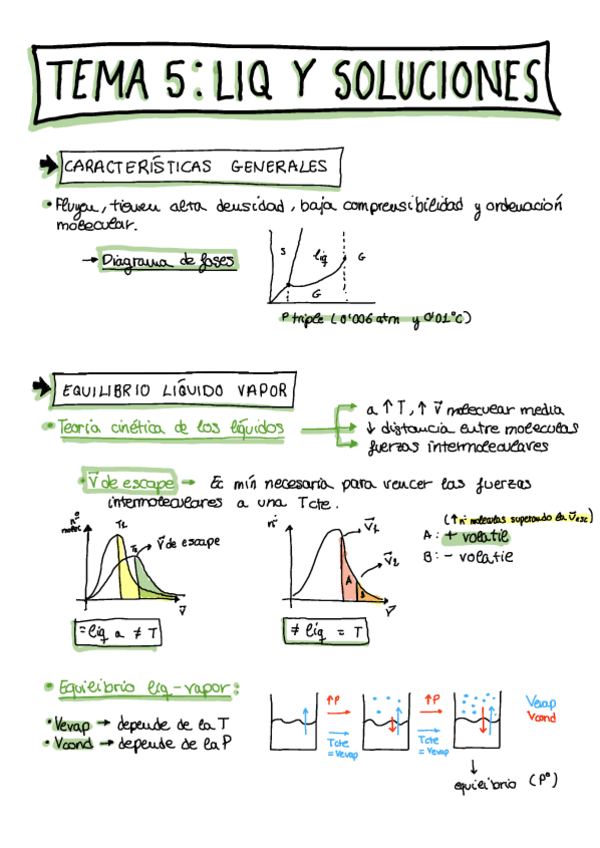 TEMA 5: LIQ Y SOLUCIONES
CARACTERÍSTICAS GENERALES
• Fluyen, tienen alta densidad, baja comprensibilidad y ordenación
molecular.
→ Diagrama de fases
S
liq
G
G
P triple (0'006 atm y 0'01°C)
EQUILIBRIO LÍQUIDO VAPOR
• Teoría cinética de los líquidos
a ↑ T, ↑ v⃗ molecular media
↓ distancia entre moleculas
fuerzas intermoleculares
• v⃗ de escape → Ec mín necesaria para vencer las fuerzas
intermoleculares a una Tcte.
nº molec
T1
T2
v⃗ de escape
v⃗
= liq a ≠ T
nº
v⃗1
v⃗2
A
B
v⃗
≠ liq = T
(↑ nº moleculas superando la v⃗esc)
A: + volatil
B: - volatil
• Equilibrio liq-vapor:
• Vevap → depende de la T
• Vcond → depende de la P
↑P
Tcte
= Vevap
↑P
Tcte
= Vevap
Vevap
Vcond
equilibrio (Pº)